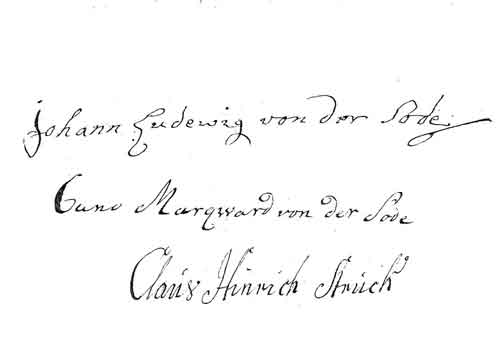 Johann Ludewig von der Sode
Cuno Marqward von der Sode
Claüs Hinrich Strück